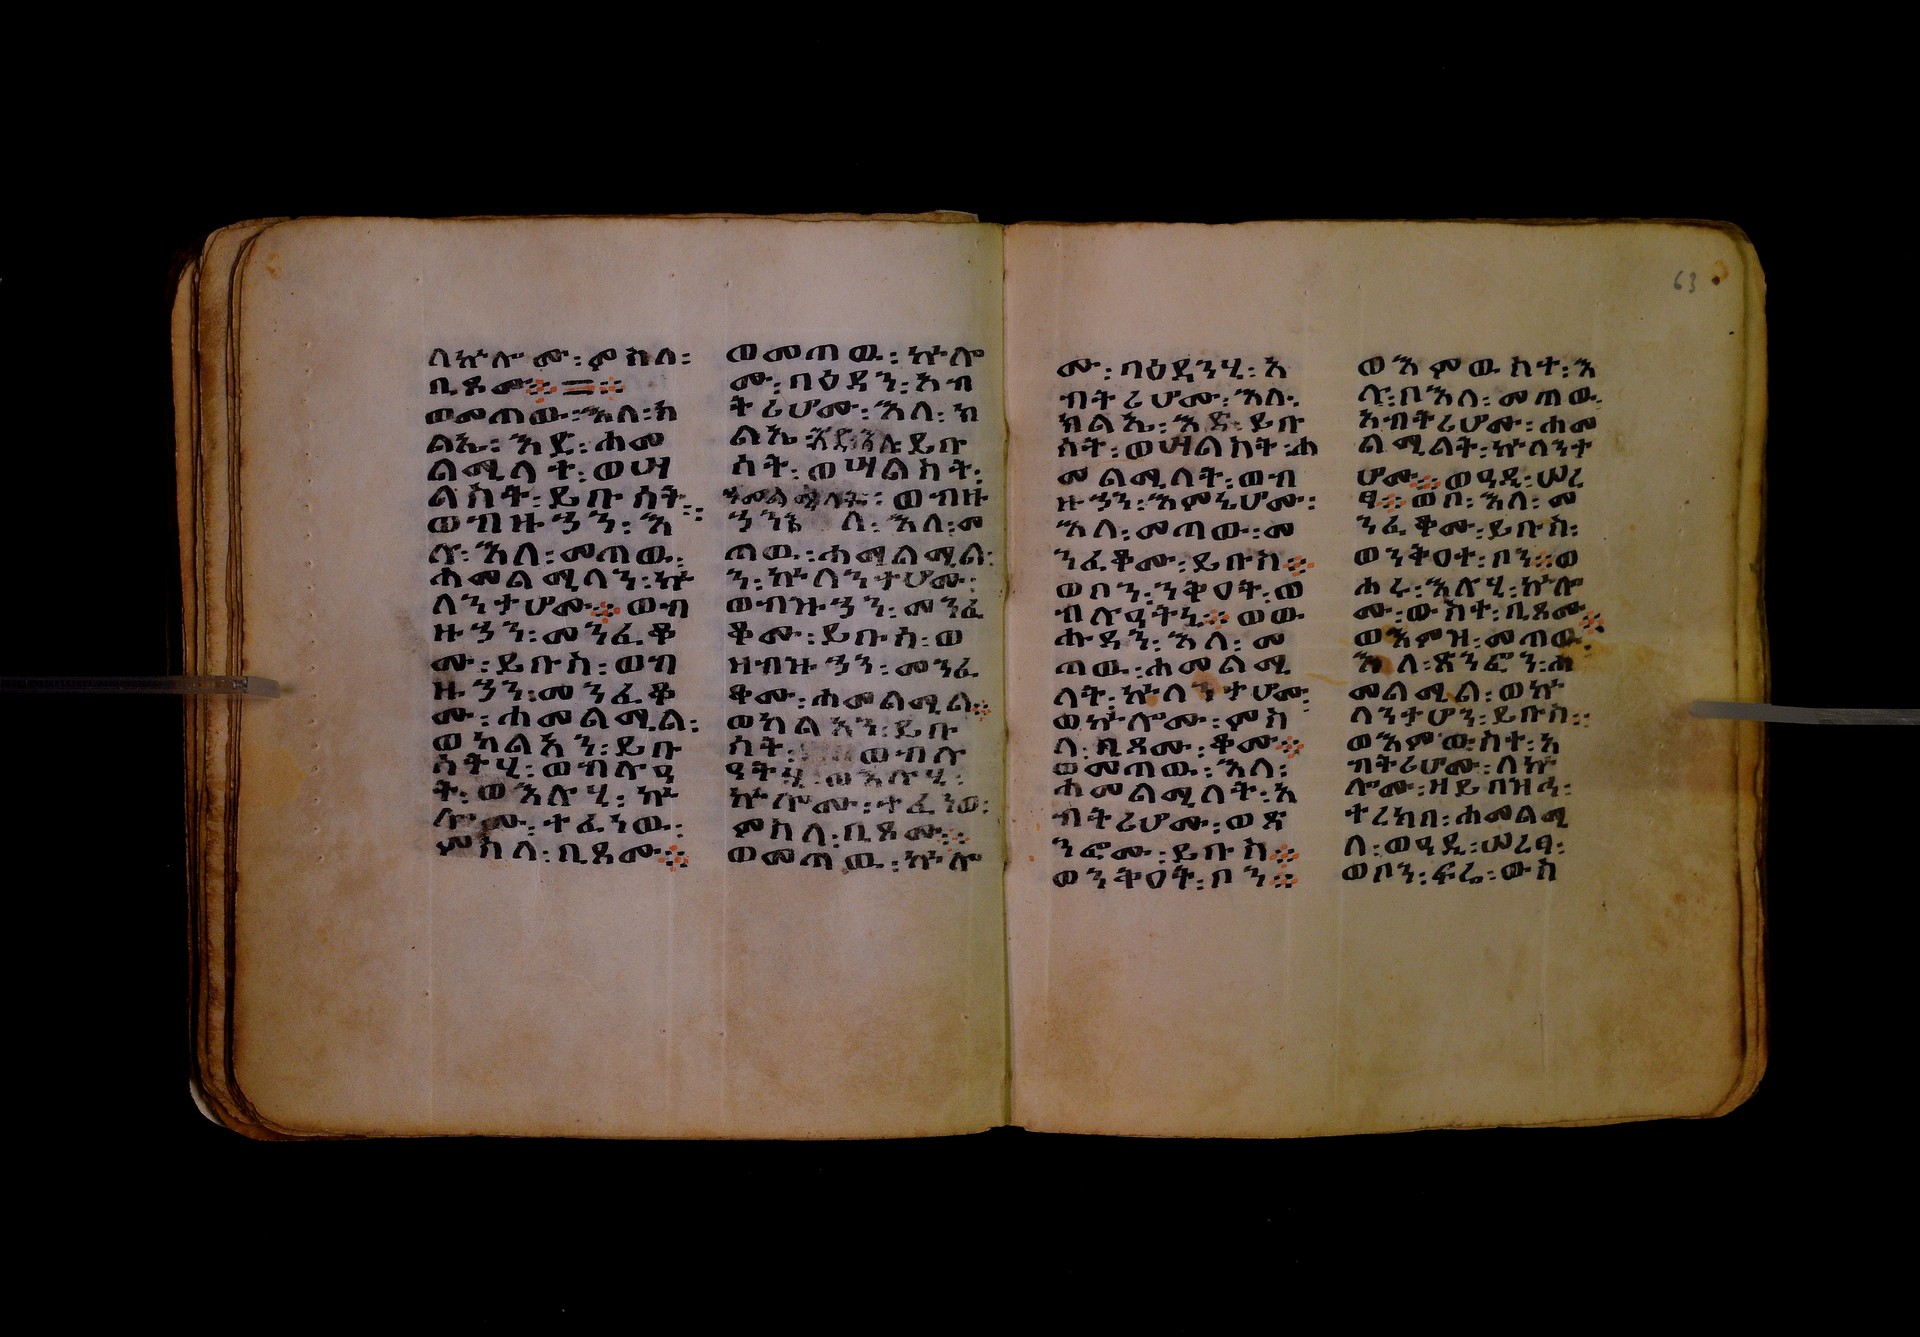 ባኵሎሙ፡ምስለ፡
ቢጾሙ።=።
ወመጠው፡እለ፡ክ
ልኤ፡እድ፡ሐመ
ልሚላት፡ወሣ
ልስት፡ይቡሳት፡
ወብዙኃን፡እ
ሉ፡እለ፡መጠው፡
ሐመልሚላን፡ኵ
ለንታሆሙ።ወብ
ዙኃን፡መንፈቆ
ሙ፡ይቡስ፡ወብ
ዙኃን፡መንፈቆ
ሙ፡ሐመልሚል፡
ወካልኣን፡ይቡ
ሳት
ት፡ወእሉሂ፡ኵ
ሎሙ፡ተፈነው፡
ምስለ፡ቢጾሙ።
ወመጠው፡ኵሎ
ሙ፡በዕዳን፡አብ
ትሪሆሙ፡እለ፡ክ
ልኤ፡ይቡ
ሳት፡ወሣልስት፡
ወብዙ
ኃን እለ፡መ
ጠው፡ሐመልሚል፡
ን፡ኵለንታሆሙ፡
ወብዙኃን፡መንፈ
ቆሙ፡ይቡስ፡ወ
ዘብዙኃን፡መንፈ
ቆሙ፡ሐመልሚል።
ወካልኣን፡ይቡ
ሳት፡ ወብሉ
ያትሂ፡ወእሉሂ፡
ኵሎሙ፡ተፈነው፡
ምስለ፡ቢጾሙ።
ወመጠው፡ኵሎ
ሙ፡በዕደንሂ፡አ
ብትሪሆሙ፡እለ፡
ክልኤ፡እድ፡ይቡ
ሳት፡ወሣልስት፡ሐ
መልሚላት፡ወብ
ዙኃን፡እምኔሆሙ፡
እለ፡መጠው፡መ
ንፈቆሙ፡ይቡስ።
ወቦን፡ንቅዐት፡ወ
ብሉያትኒ።ወው
ሑዳን፡እለ፡መ
ጠው፡ሐመልሚ
ላት፡ኵለንታሆሙ፡
ወኵሎሙ፡ምስ
ለ፡ቢጾሙ፡ቆሙ።
ወመጠው፡እለ፡
ሐመልሚላት፡አ
ብትሪሆሙ፡ወጽ
ንፎሙ፡ይቡስ።
ወንቅዐት፡ቦን።
ወእምውስተ፡እ
ሉ፡በእለ፡መጠው፡
አብትሪሆሙ፡ሐመ
ልሚልት፡ኵለንተ
ሆሙ።ወዓዲ፡ሠረ
ፃ።ወቦ፡እለ፡መ
ንፈቆሙ፡ይቡስ፡
ወንቅዐተ፡ቦን።ወ
ሐሩ፡እሉሂ፡ኵሎ
ሙ፡ውስተ፡ቢጾሙ።
ወእምዝ፡መጠው፡
እለ፡ጽንፎን፡ሐ
መልሚል፡ወኵ
ለንታሆን፡ይቡስ።
ወእምውስተ፡አ
ብትሪሆሙ፡ለኵ
ሎሙ፡ዘይበዝኁ፡
ተረክበ፡ሐመልሚ
ለ፡ወዓዲ፡ሠረፃ፡
ወቦን፡ፍሬ፡ውስ